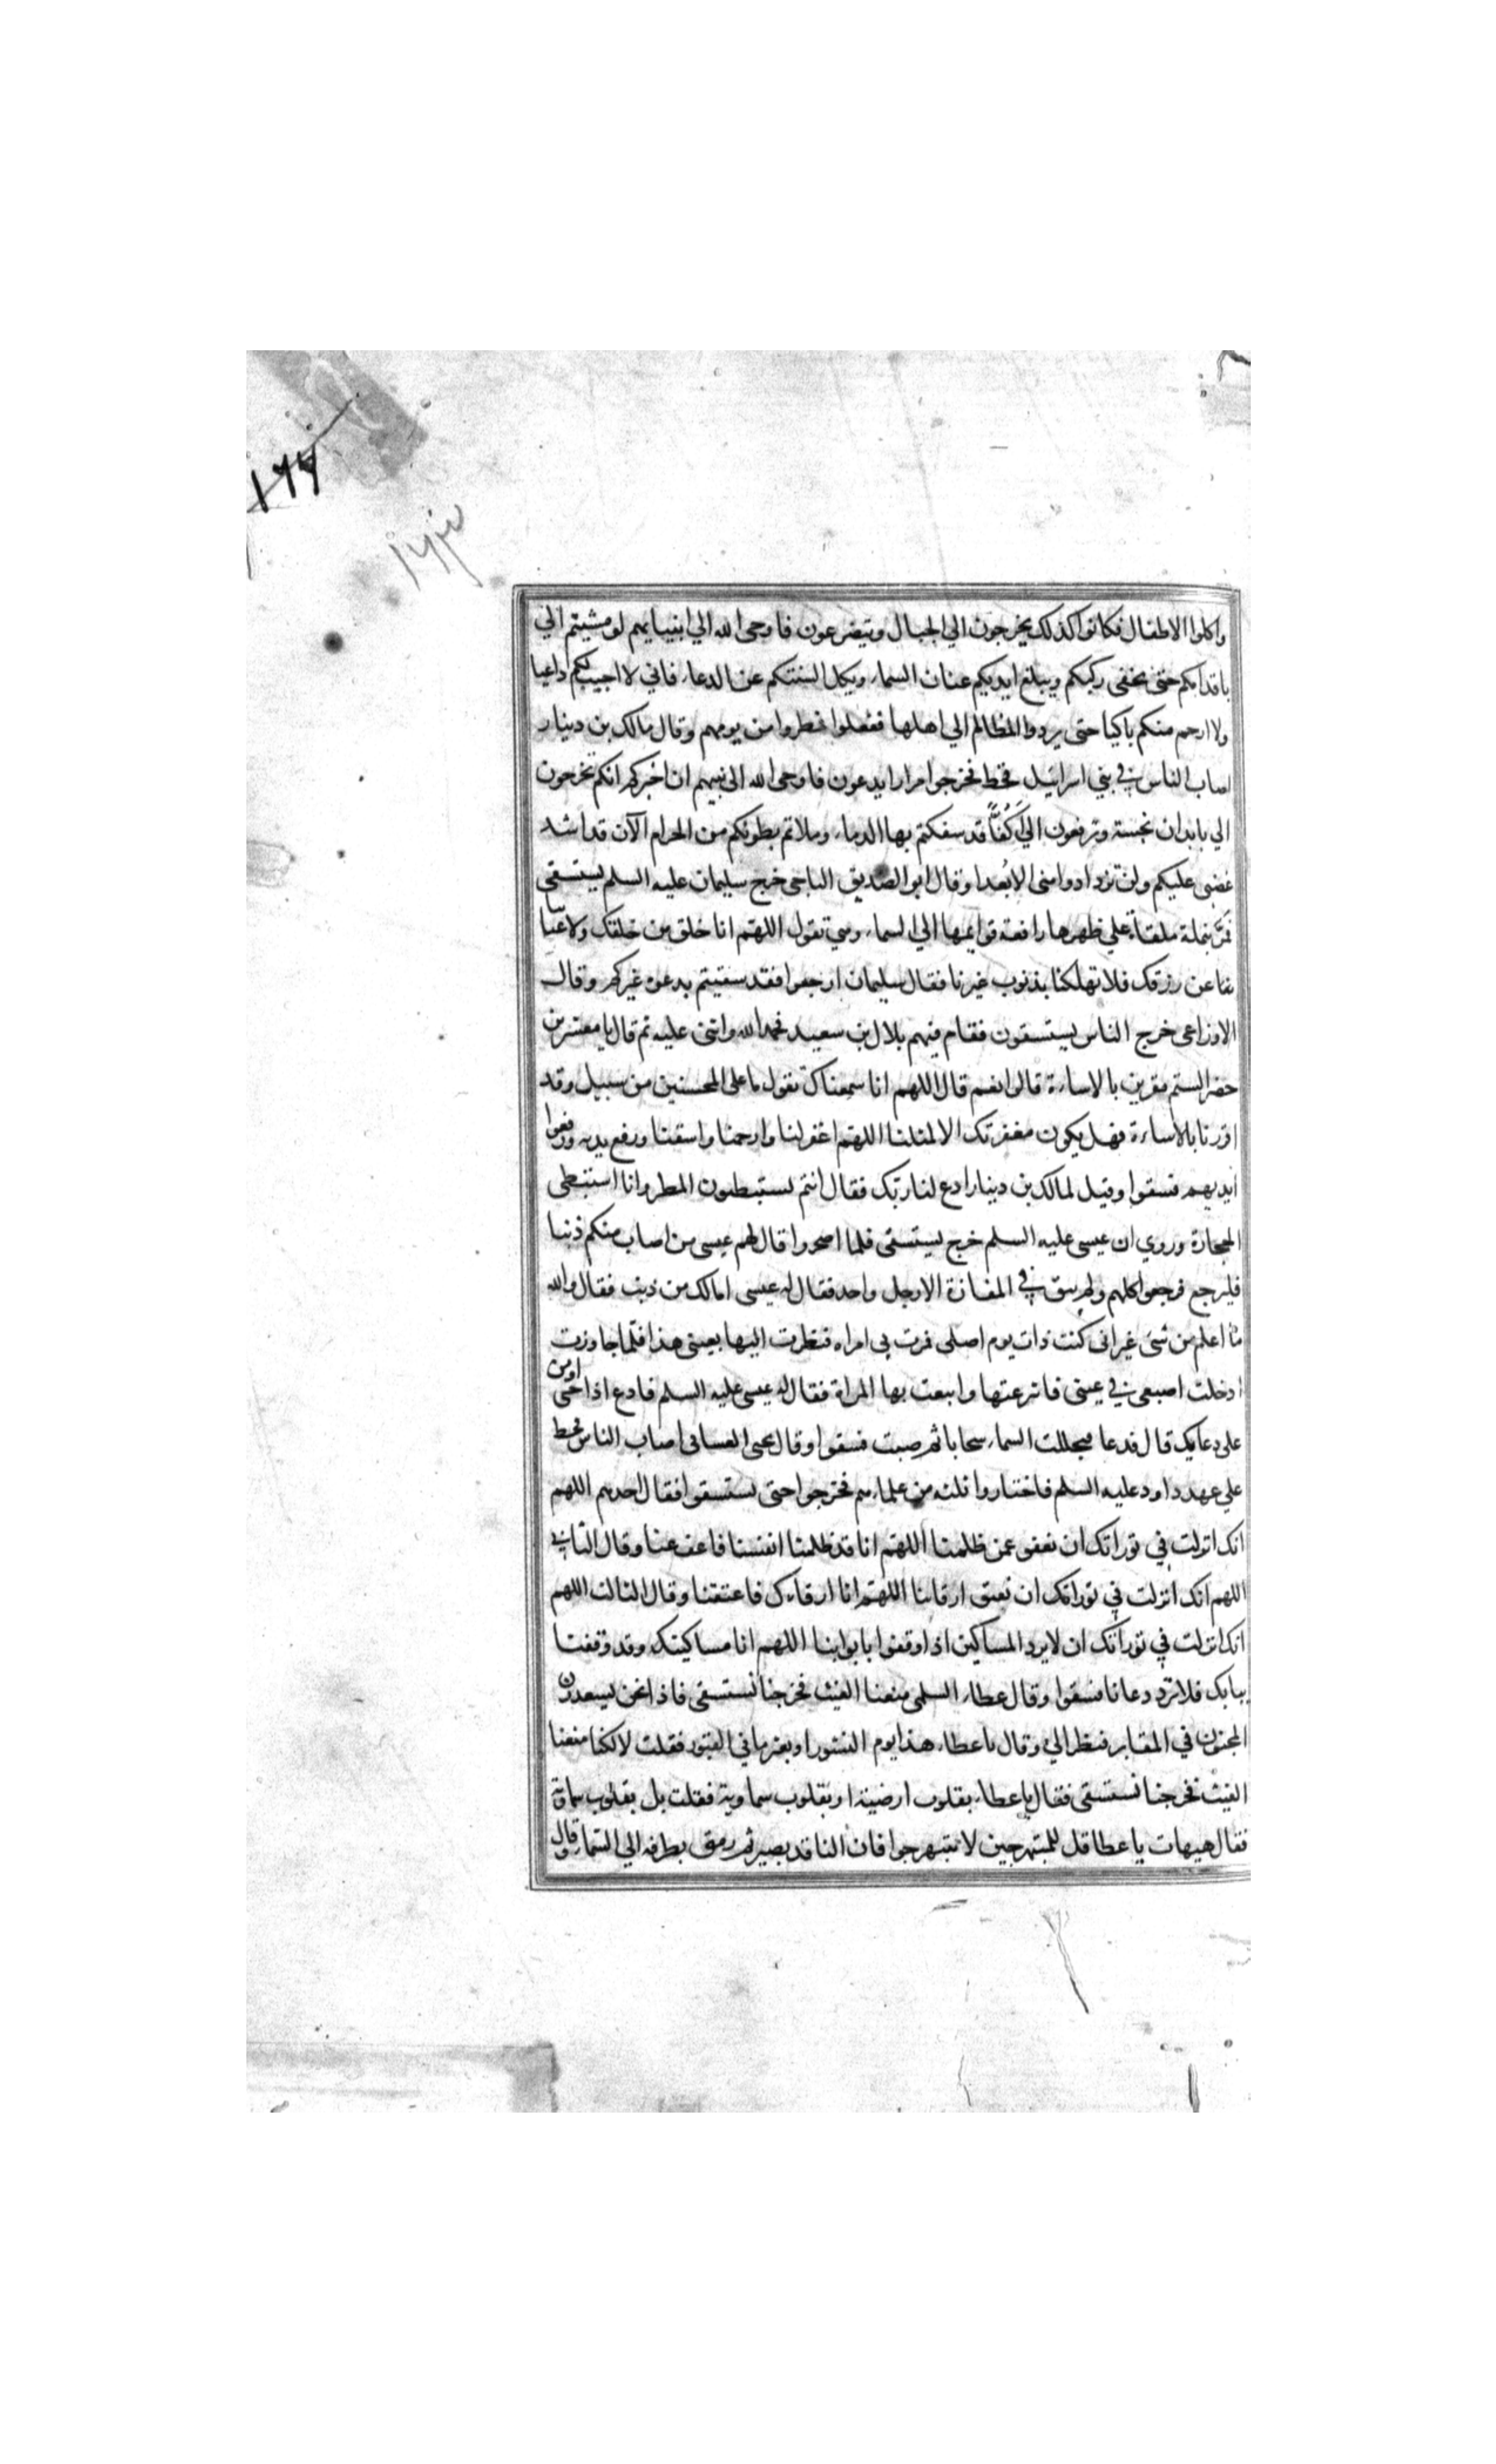 ١٦٦
١٦٣
واكلوا الاطفال فكانوا كذلك يخرجون الي الجبال ويتضرعون فاوحى الله الي انبيايهم لو مشيتم الي
باقدامكم حتى تحفى ركبكم ويبلغ ايديكم عنان السماء ويكل السنتكم عن الدعاء فاني لا اجيب لكم داعيا
ولا ارحم منكم باكيا حتى يردوا المظالم الي اهلها ففعلوا فمطروا من يومهم وقال مالك بن دينار
اصاب الناس في بني اسرائيل قحط فخرجوا مرارا يدعون فاوحى الله الى نبيهم ان اخبركم انكم تخرجون
الي بابدان نجسة وترفعون الي اكفا قد سفكتم بها الدماء وملاتم بطونكم من الحرام الآن قد اشتد
غضبى عليكم ولن تزدادوا منى الا بُعدا وقال ابو الصديق الناجى خرج سليمان عليه السلم يستسقى
فمرّ بنملة ملقاة علي ظهرها رافعة قوايمها الي السماء وهي تقول اللهم انا خلق من خلقك ولا غنا
بنا عن رزقك فلا تهلكنا بذنوب غيرنا فقال سليمان ارجعوا فقد سقيتم بدعوة غيركم وقال
الاوزاعى خرج الناس يستسقون فقام فيهم بلال بن سعيد فحمد الله واثنى عليه ثم قال يا معشر من
حضر الستم مقرين بالاساءة قالوا نعم قال اللهم انا سمعناك تقول ما على المحسنين من سبيل وقد
اقررنا بالاساءة فهل يكون مغفرتك الا لمثلنا اللهم اغفر لنا وارحمنا واسقنا ورفع يديه ورفعوا
ايديهم فسقوا وقيل لمالك بن دينار ادع لنا ربك فقال انتم تستبطئون المطر وانا استبطى
الحجارة وروي ان عيسى عليه السلم خرج يستسقى فلما اصحروا قال لهم عيسى من اصاب منكم ذنبا
فليرجع فرجعوا كلهم ولم يبق في المفازة الا رجل واحد فقال له عيسى امالك من ذنب فقال والله
ما اعلم من شئ غير انى كنت ذات يوم اصلى فمرت بى امراه فنظرت اليها بعينى هذا فلما جاوزت
ادخلت اصبعى في عينى فانتزعتها واتبعت بها المراة فقال له عيسى عليه السلم فادع اذا حتى اومن
على دعايك قال فدعا فجللت السماء سحابا ثم صبت فسقوا وقال يحيى الغسانى اصاب الناس قحط
علي عهد داود عليه السلم فاختاروا ثلثه من علماءهم فخرجوا حتى يستسقوا فقال احدهم اللهم
انك انزلت في توراتك ان نعفو عمن ظلمنا اللهم انا قد ظلمنا انفسنا فاعف عنا وقال الثاني
اللهم انك انزلت في توراتك ان نعتق ارقابنا اللهم انا ارقاءك فاعتقنا وقال الثالث اللهم
انك انزلت في توراتك ان لا يرد المساكين اذا وقفوا بابوابنا اللهم انا مساكينك وقد وقفنا
ببابك فلا ترد دعانا فسقوا وقال عطاء السلمى منعنا الغيث فخرجنا نستسقى فاذا نحن بسعدون
المجنون في المقابر فنظر الي وقال يا عطاء هذا يوم النشور او بعثر ما في القبور فقلت لا لكنا منعنا
الغيث فخرجنا نستسقى فقال يا عطاء بقلوب ارضية او بقلوب سماوية فقلت بل بقلوب سماوية
فقال هيهات يا عطا قل للمتبهرجين لا تتبهرجوا فان الناقد بصير ثم رمق بطرفه الي السماء وقال